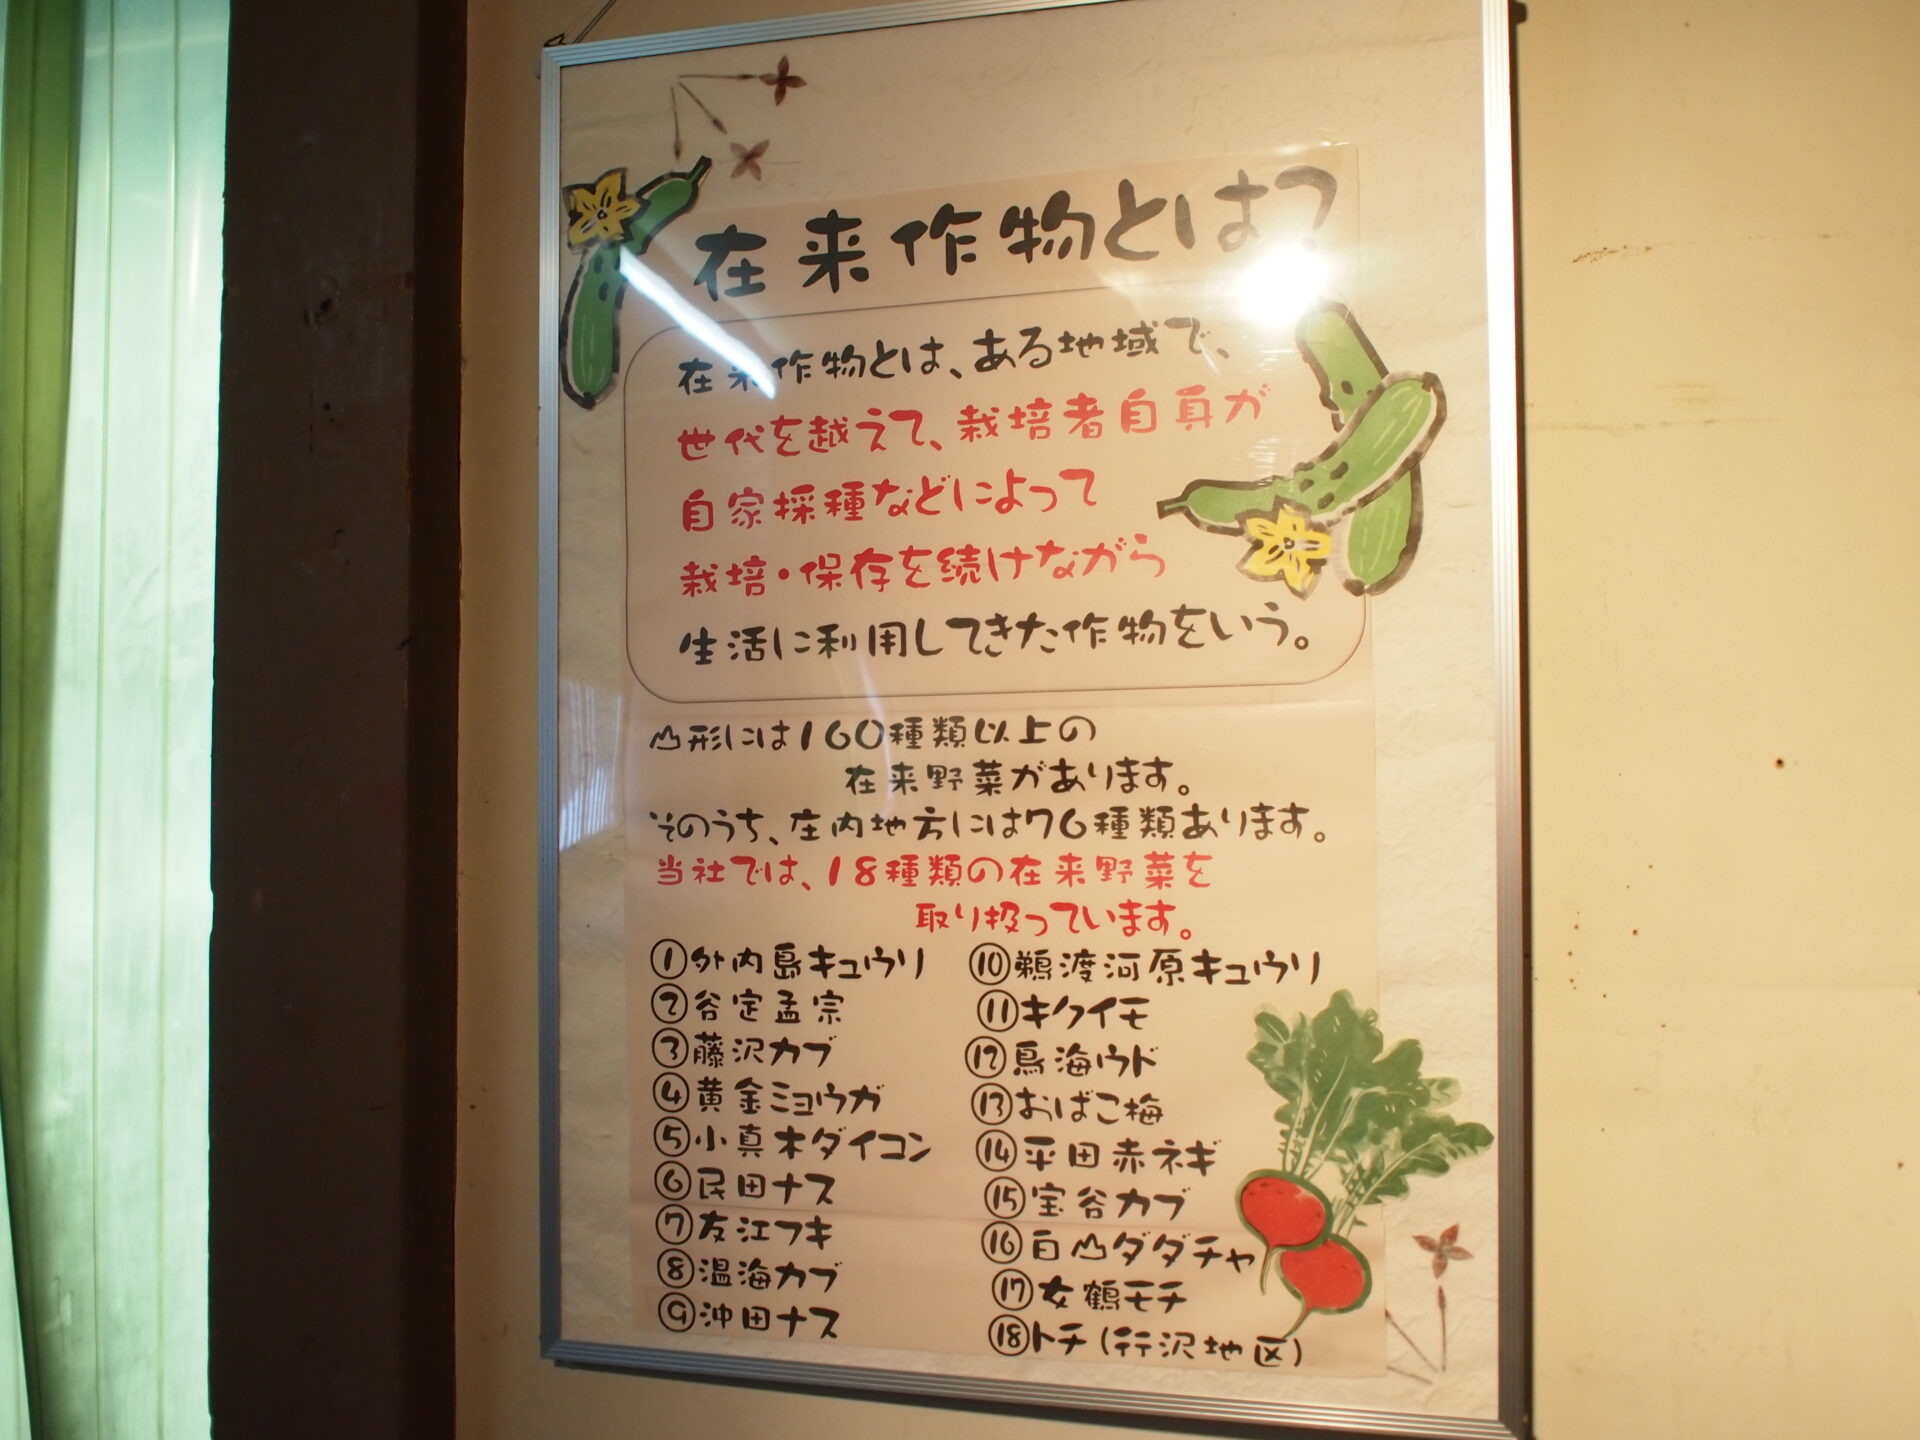 在来作物とは?
在来作物とは、ある地域で、
世代を越えて、栽培者自身が
自家採種などによって
栽培・保存を続けながら
生活に利用してきた作物をいう。
山形には160種類以上の
在来野菜があります。
そのうち、庄内地方には76種類あります。
当社では、18種類の在来野菜を
取り扱っています。
①外内島キュウリ
②谷定孟宗
③藤沢カブ
④黄金ミョウガ
⑤小真木ダイコン
⑥民田ナス
⑦友江フキ
⑧温海カブ
⑨沖田ナス
⑩鵜渡河原キュウリ
⑪キクイモ
⑫鳥海ウド
⑬おばこ梅
⑭平田赤ネギ
⑮宝谷カブ
⑯白山ダダチャ
⑰女鶴モチ
⑱トチ(行沢地区)